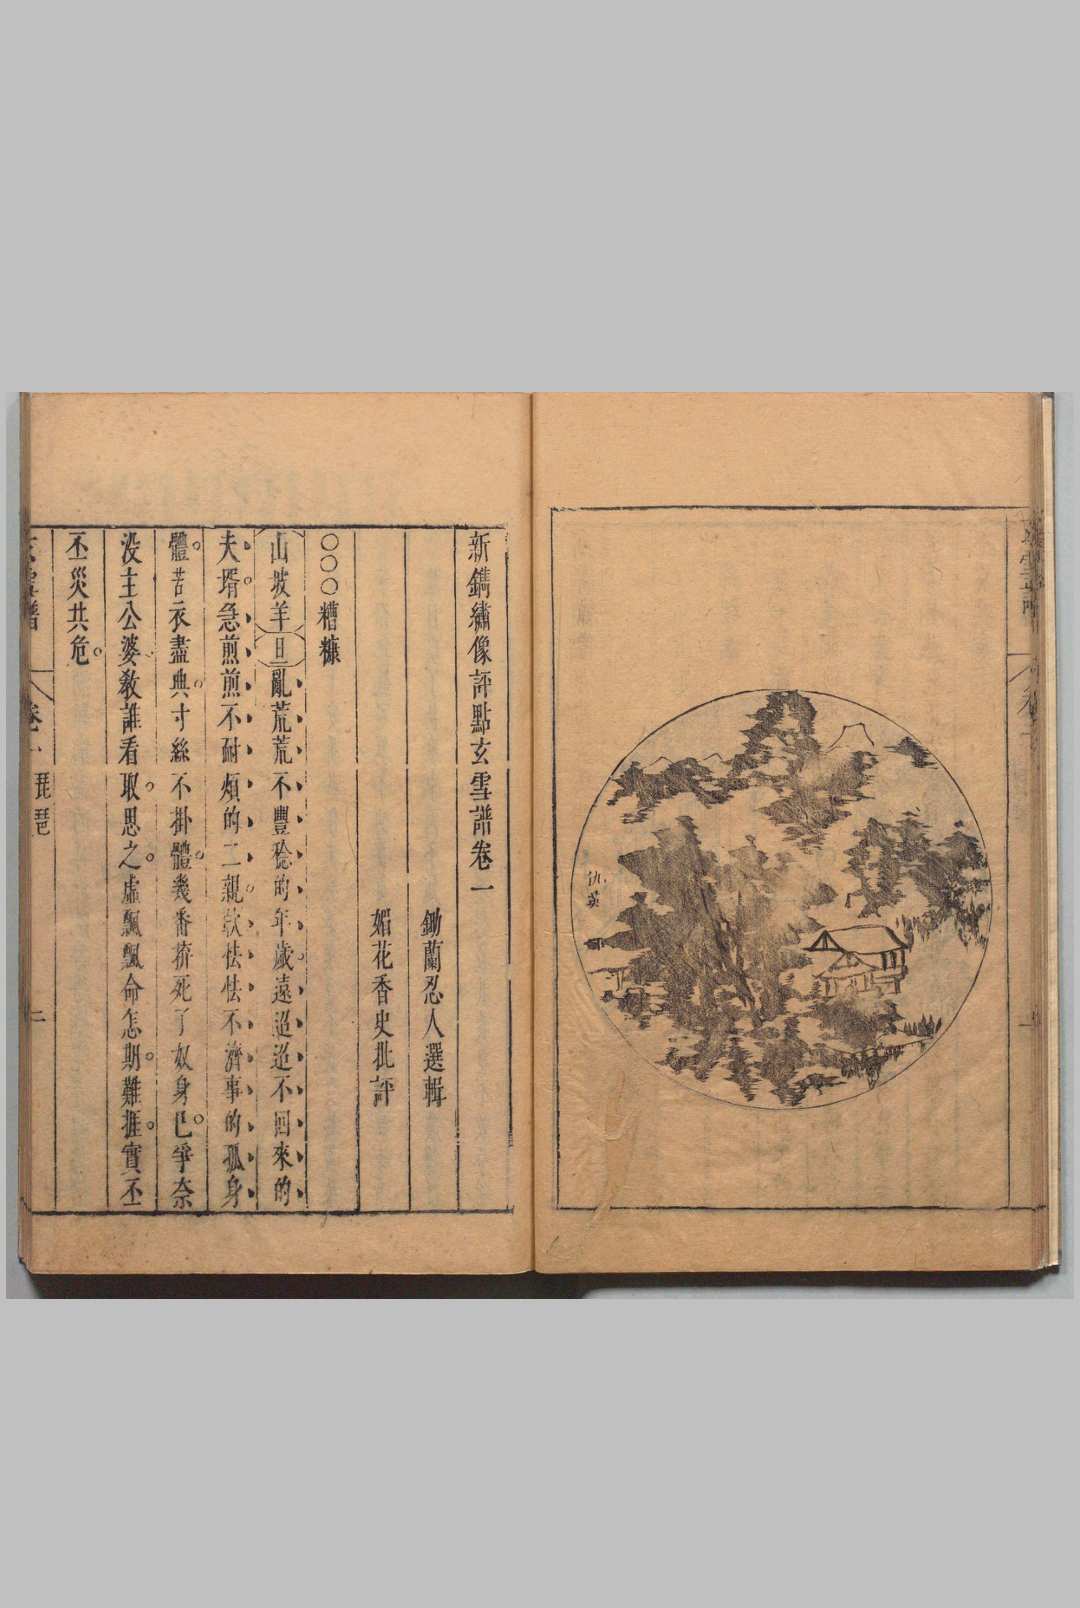 仇英
新鐫繡像評點玄雪譜卷一
鋤蘭忍人選輯
媚花香史批評
○○○糟糠
山坡羊旦亂荒荒不豐稔的年歲遠迢迢不回來的
夫壻急煎煎不耐煩的二親軟怯怯不濟事的孤身
體苦衣盡典寸絲不掛體幾番拚死了奴身已爭奈
沒主公婆教誰看取思之虛飄飄命怎期難捱實丕
丕災共危
卷一
琵琶
二